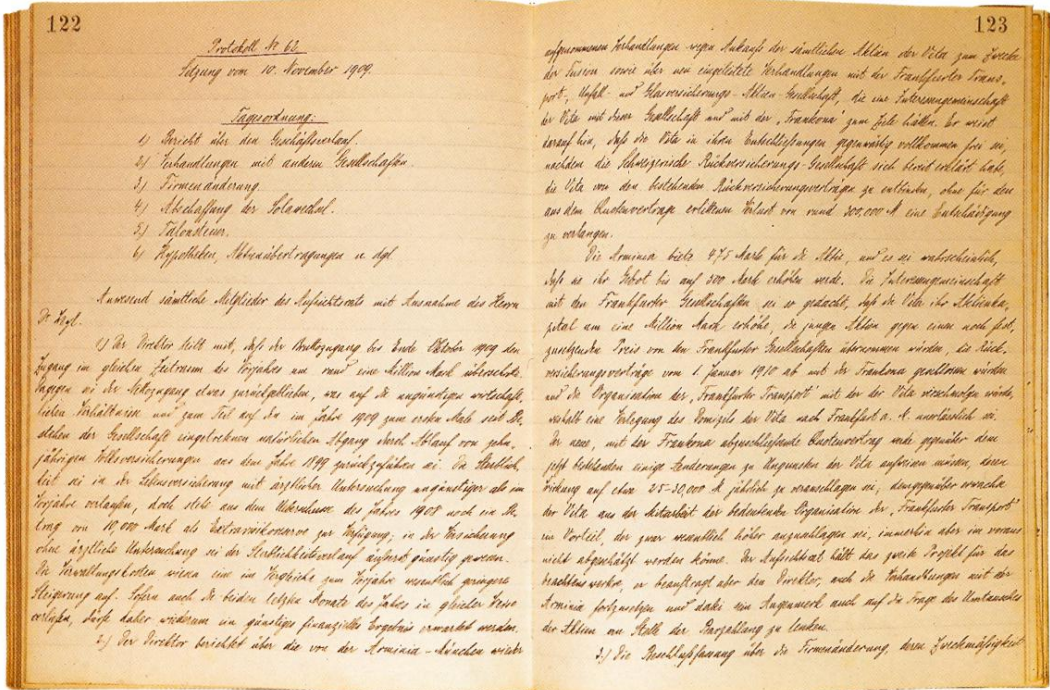 122
Protokoll Nr 62
Sitzung vom 10. November 1909.
Tagesordnung:
1) Bericht über den Geschäftsverlauf.
2) Verhandlungen mit anderen Gesellschaften.
3) Firmenänderung.
4) Abschaffung der Solawechsel.
5) Talonsteuer.
6) Hypotheken, Aktienübertragungen u. dgl
Anwesend sämtliche Mitglieder des Aufsichtsrats mit Ausnahme des Herrn
Dr
1) Der Direktor teilt mit, daß der Bruttozugang bis Ende Oktober 1909 den
Zugang im gleichen Zeitraum des Vorjahres um rund eine Million Mark überschritt.
Dagegen sei der Nettozugang etwas zurückgeblieben, was auf die ungünstigen wirtschaft-
lichen Verhältnisse und zum Teil auf den im Jahre 1909 zum ersten Male seit Be-
stehen der Gesellschaft eingetretenen natürlichen Abgang durch Ablauf von zehn-
jährigen Volksversicherungen aus dem Jahre 1899 zurückzuführen sei. Die Sterblich-
keit sei in der Lebensversicherung mit ärztlicher Untersuchung ungünstiger als im
Vorjahre verlaufen, doch stehe aus dem Ueberschusse des Jahres 1908 noch ein Be-
trag von 10,000 Mark als Extrarisikoreserve zur Verfügung; in der Versicherung
ohne ärztliche Untersuchung sei der Sterblichkeitsverlauf äußerst günstig gewesen.
Die Verwaltungskosten wiesen eine im Vergleiche zum Vorjahre wesentlich geringere
Steigerung auf. Sofern auch die beiden letzten Monate des Jahres in gleicher Weise
verliefen, dürfe daher wiederum ein günstiges finanzielles Ergebnis erwartet werden.
2.) Der Direktor berichtet über die von der Arminia-München wieder
123
aufgenommenen Verhandlungen wegen Ankaufs der sämtlichen Aktien der Vita zum Zwecke
der Fusion sowie über neu eingeleitete Verhandlungen mit der Frankfurter Trans-
port-, Unfall- und Glasversicherungs-Aktien-Gesellschaft, die eine Interessengemeinschaft
der Vita mit dieser Gesellschaft und mit der „Frankona" zum Ziele hätten. Er weist
darauf hin, daß die Vita in ihren Entschließungen gegenwärtig vollkommen frei sei,
nachdem die Schweizerische Rückversicherungs-Gesellschaft sich bereit erklärt habe,
die Vita von den bestehenden Rückversicherungsverträgen zu entbinden, ohne für den
aus dem Quotenvertrage erlittenen Verlust von rund 300,000 M eine Entschädigung
zu verlangen.
Die Arminia biete 475 Mark für die Aktie, und es sei wahrscheinlich,
daß sie ihr Gebot bis auf 500 Mark erhöhen werde. Die Interessengemeinschaft
mit den Frankfurter Gesellschaften sei so gedacht, daß die Vita ihr Aktienka-
pital um eine Million Mark erhöhe, die jungen Aktien gegen einen noch fest-
zusetzenden Preis von den Frankfurter Gesellschaften übernommen würden, die Rück-
versicherungsverträge vom 1. Januar 1910 ab mit der Frankona geschlossen würden
und die Organisation der „Frankfurter Transport" mit der der Vita verschmolzen würde,
weshalb eine Verlegung des Domizils der Vita nach Frankfurt a. M. unerlässlich sei.
Der neue, mit der Frankona abzuschließende Quotenvertrag werde gegenüber dem
jetzt bestehenden einige Aenderungen zu Ungunsten der Vita aufweisen müssen, deren
Wirkung auf etwa 25-30,000 M jährlich zu veranschlagen sei; demgegenüber erwachse
der Vita aus der Mitarbeit der bedeutenden Organisation der „Frankfurter Transport"
ein Vorteil, der zwar wesentlich höher anzuschlagen sei, immerhin aber im voraus
nicht abgeschätzt werden könne. Der Aufsichtsrat hält das zweite Projekt für das
beachtenswertere, er beauftragt aber den Direktor, auch die Verhandlungen mit der
Arminia fortzusetzen und dabei ein Augenmerk auch auf die Frage des Umtausches
der Aktien an Stelle der Barzahlung zu lenken.
3.) Die Beschlußfassung über die Firmenänderung, deren Zweckmäßigkeit